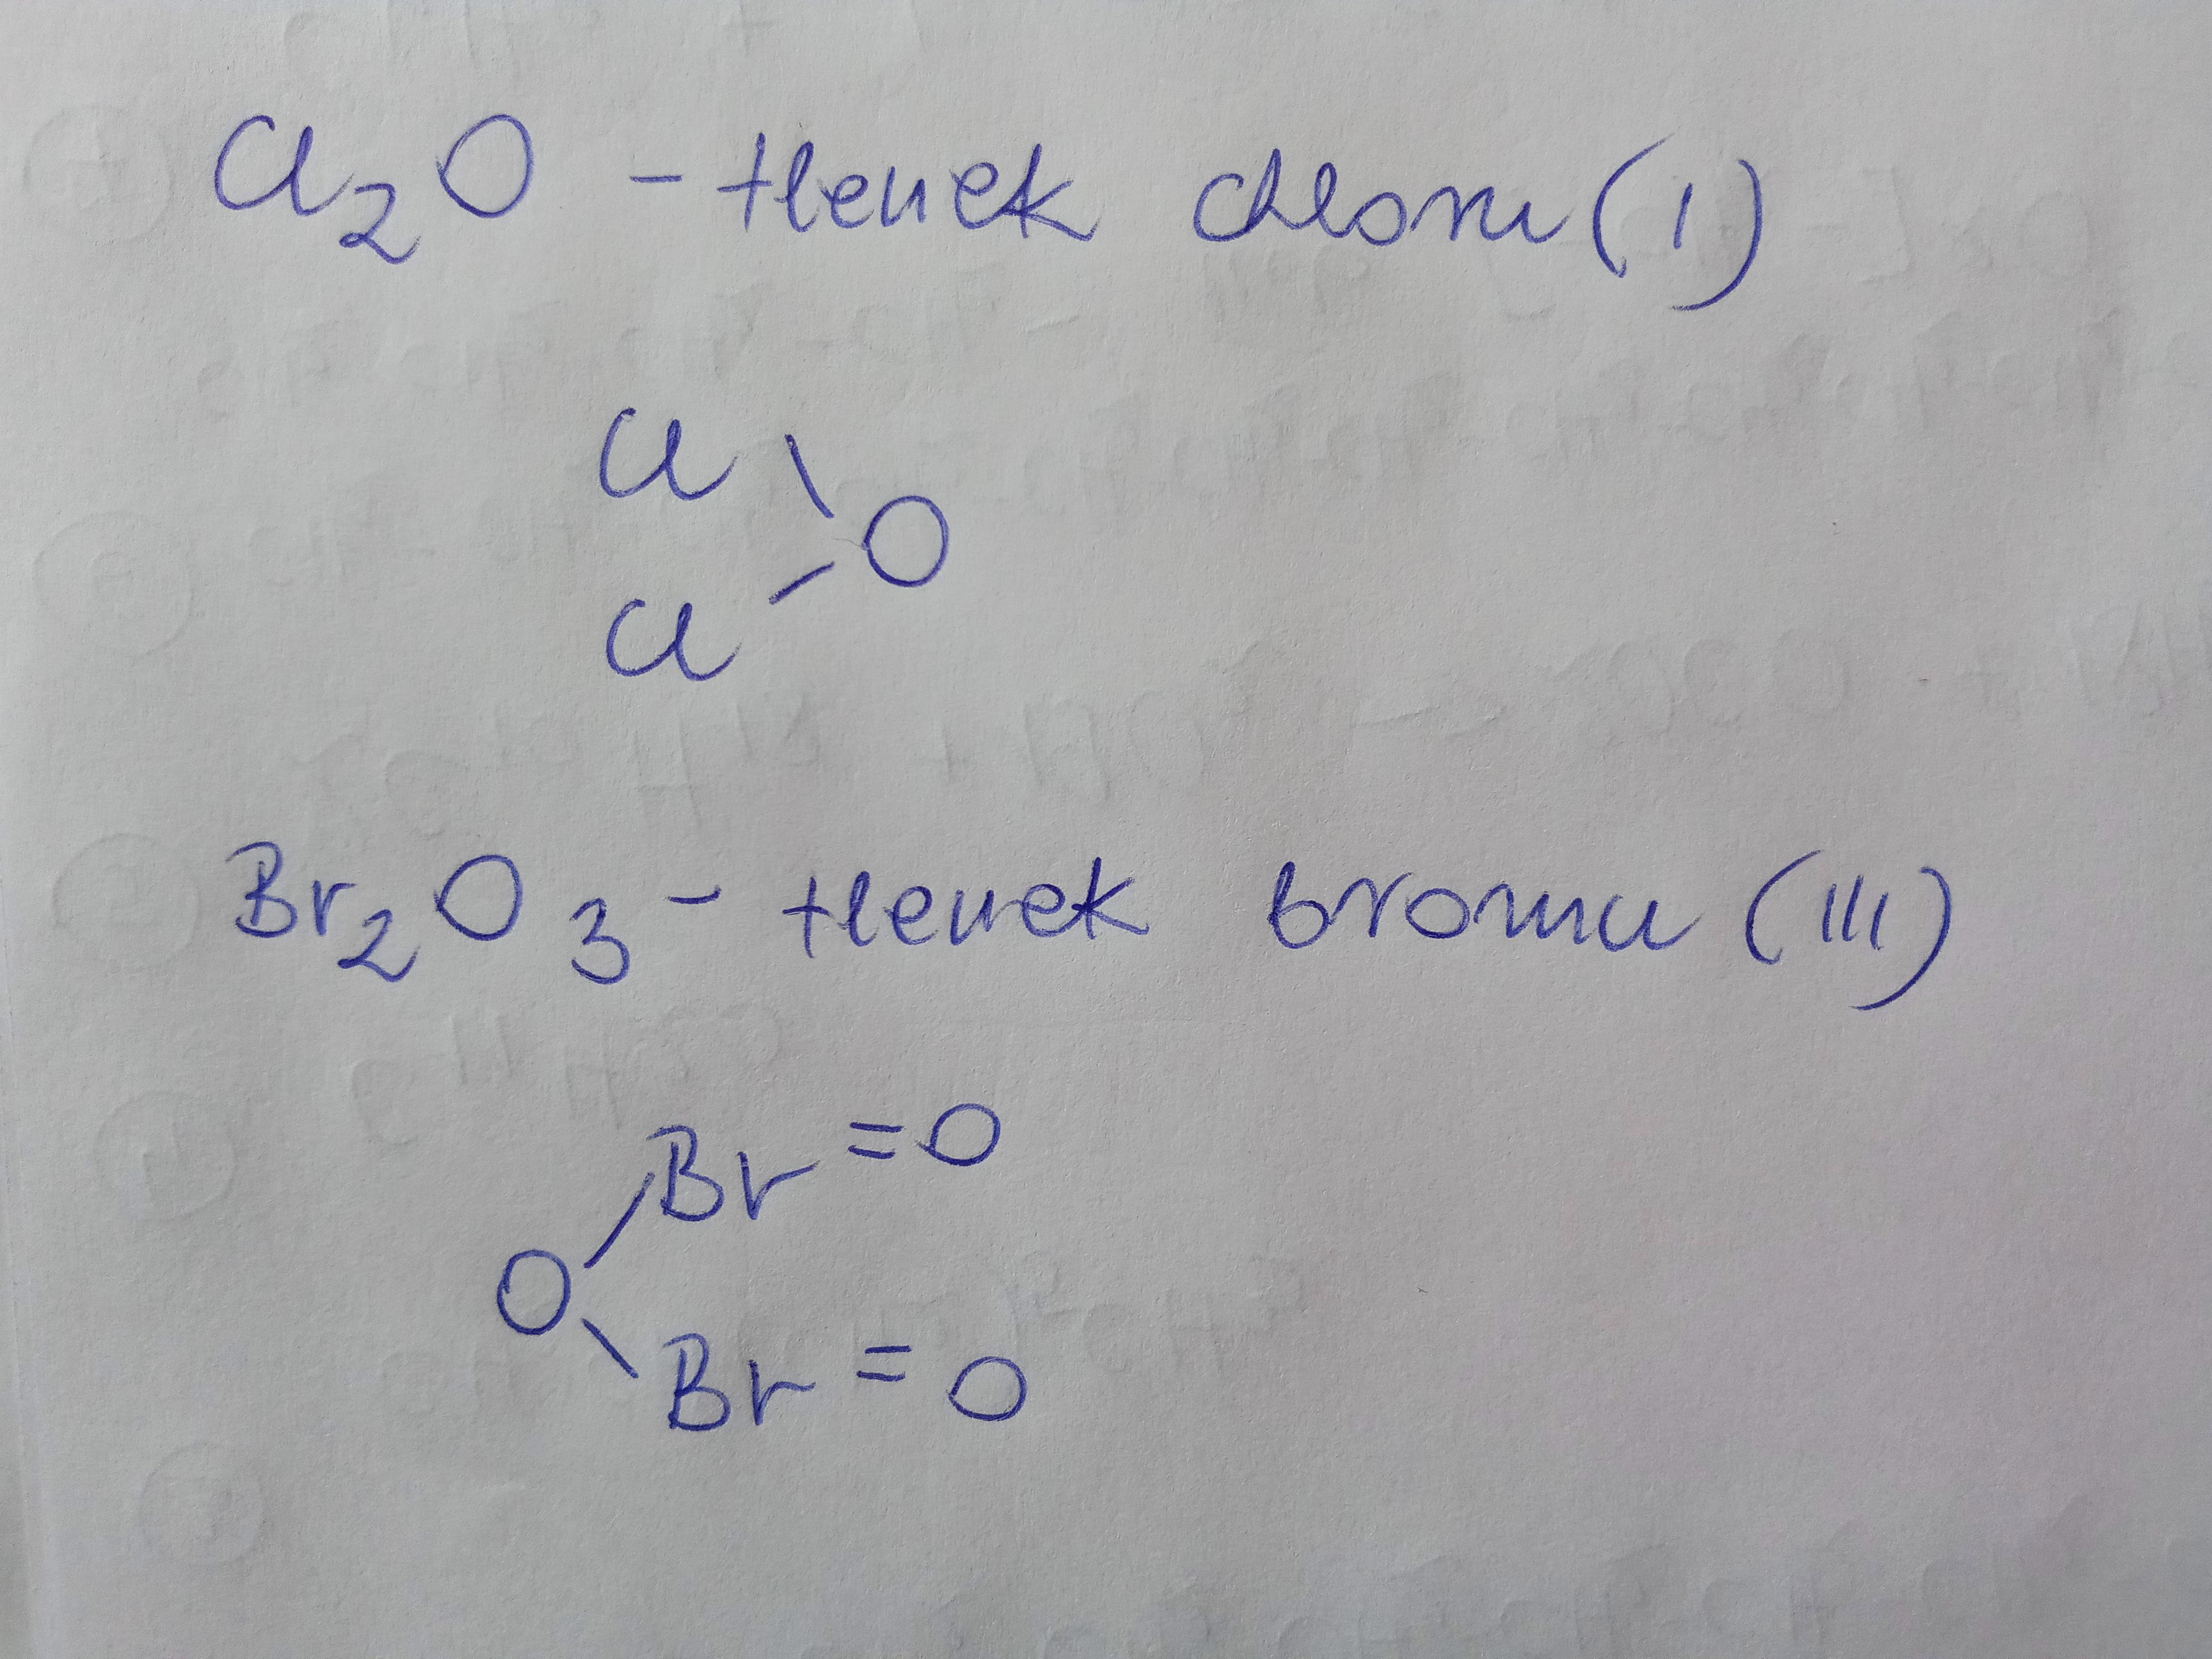 Cl₂O - tlenek chloru (I)
Cl
O
Cl
Br₂O₃ - tlenek bromu (III)
Br = O
O
Br = O